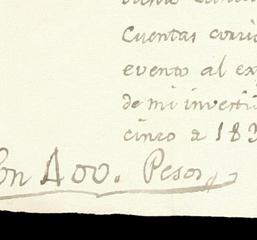 Cuentas corri
evento al ex
de mi inverti
cinco a 183
Son 400. Pesos